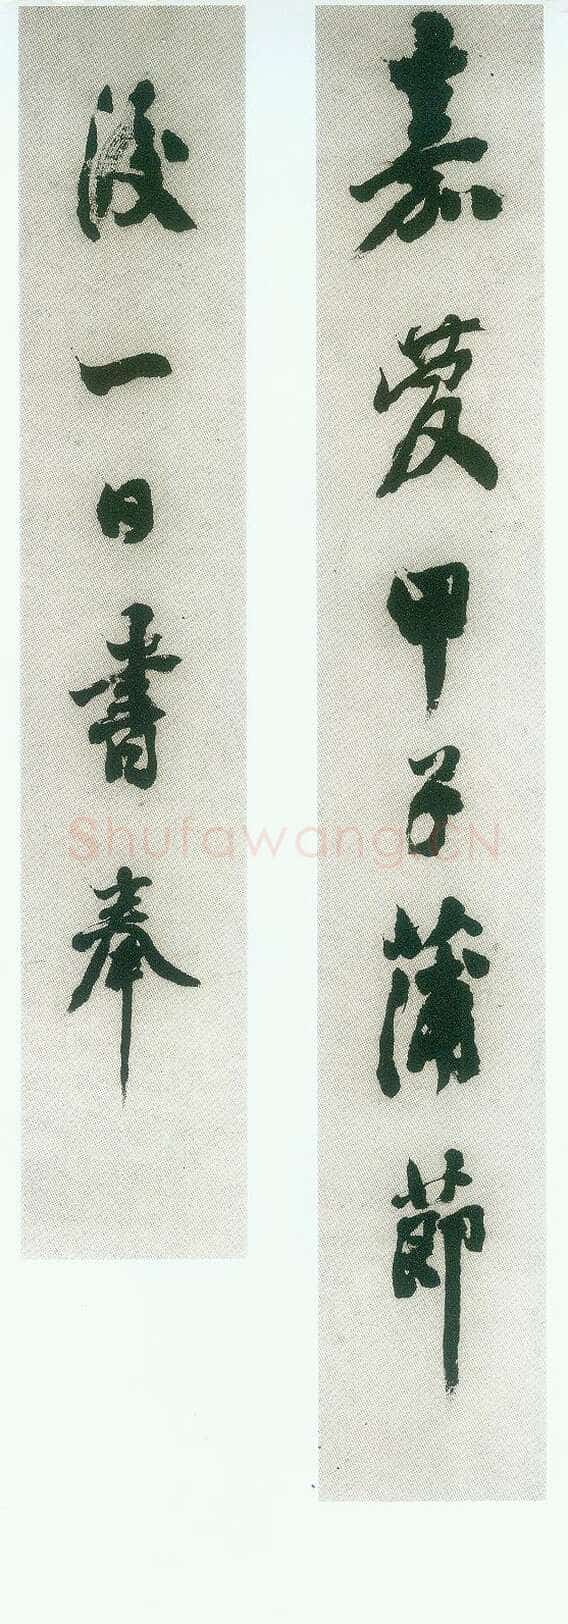 嘉慶甲子蒲節
後一日書奉
Shufawang.CN